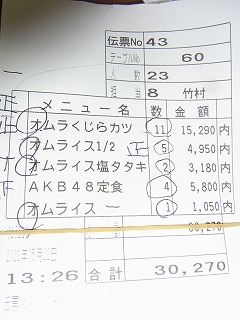 伝票No 43
テーブルNo 60
人 数 23
担 当 8 竹村
メニュー名 数 金 額
オムラくじらカツ 11 15,290 内
オムライス1/2 正 5 4,950 内
オムライス塩タタキ 2 3,180 内
AKB48定食 4 5,800 内
オムライス 一 1 1,050 内
30,270
13:26 合計 30,270